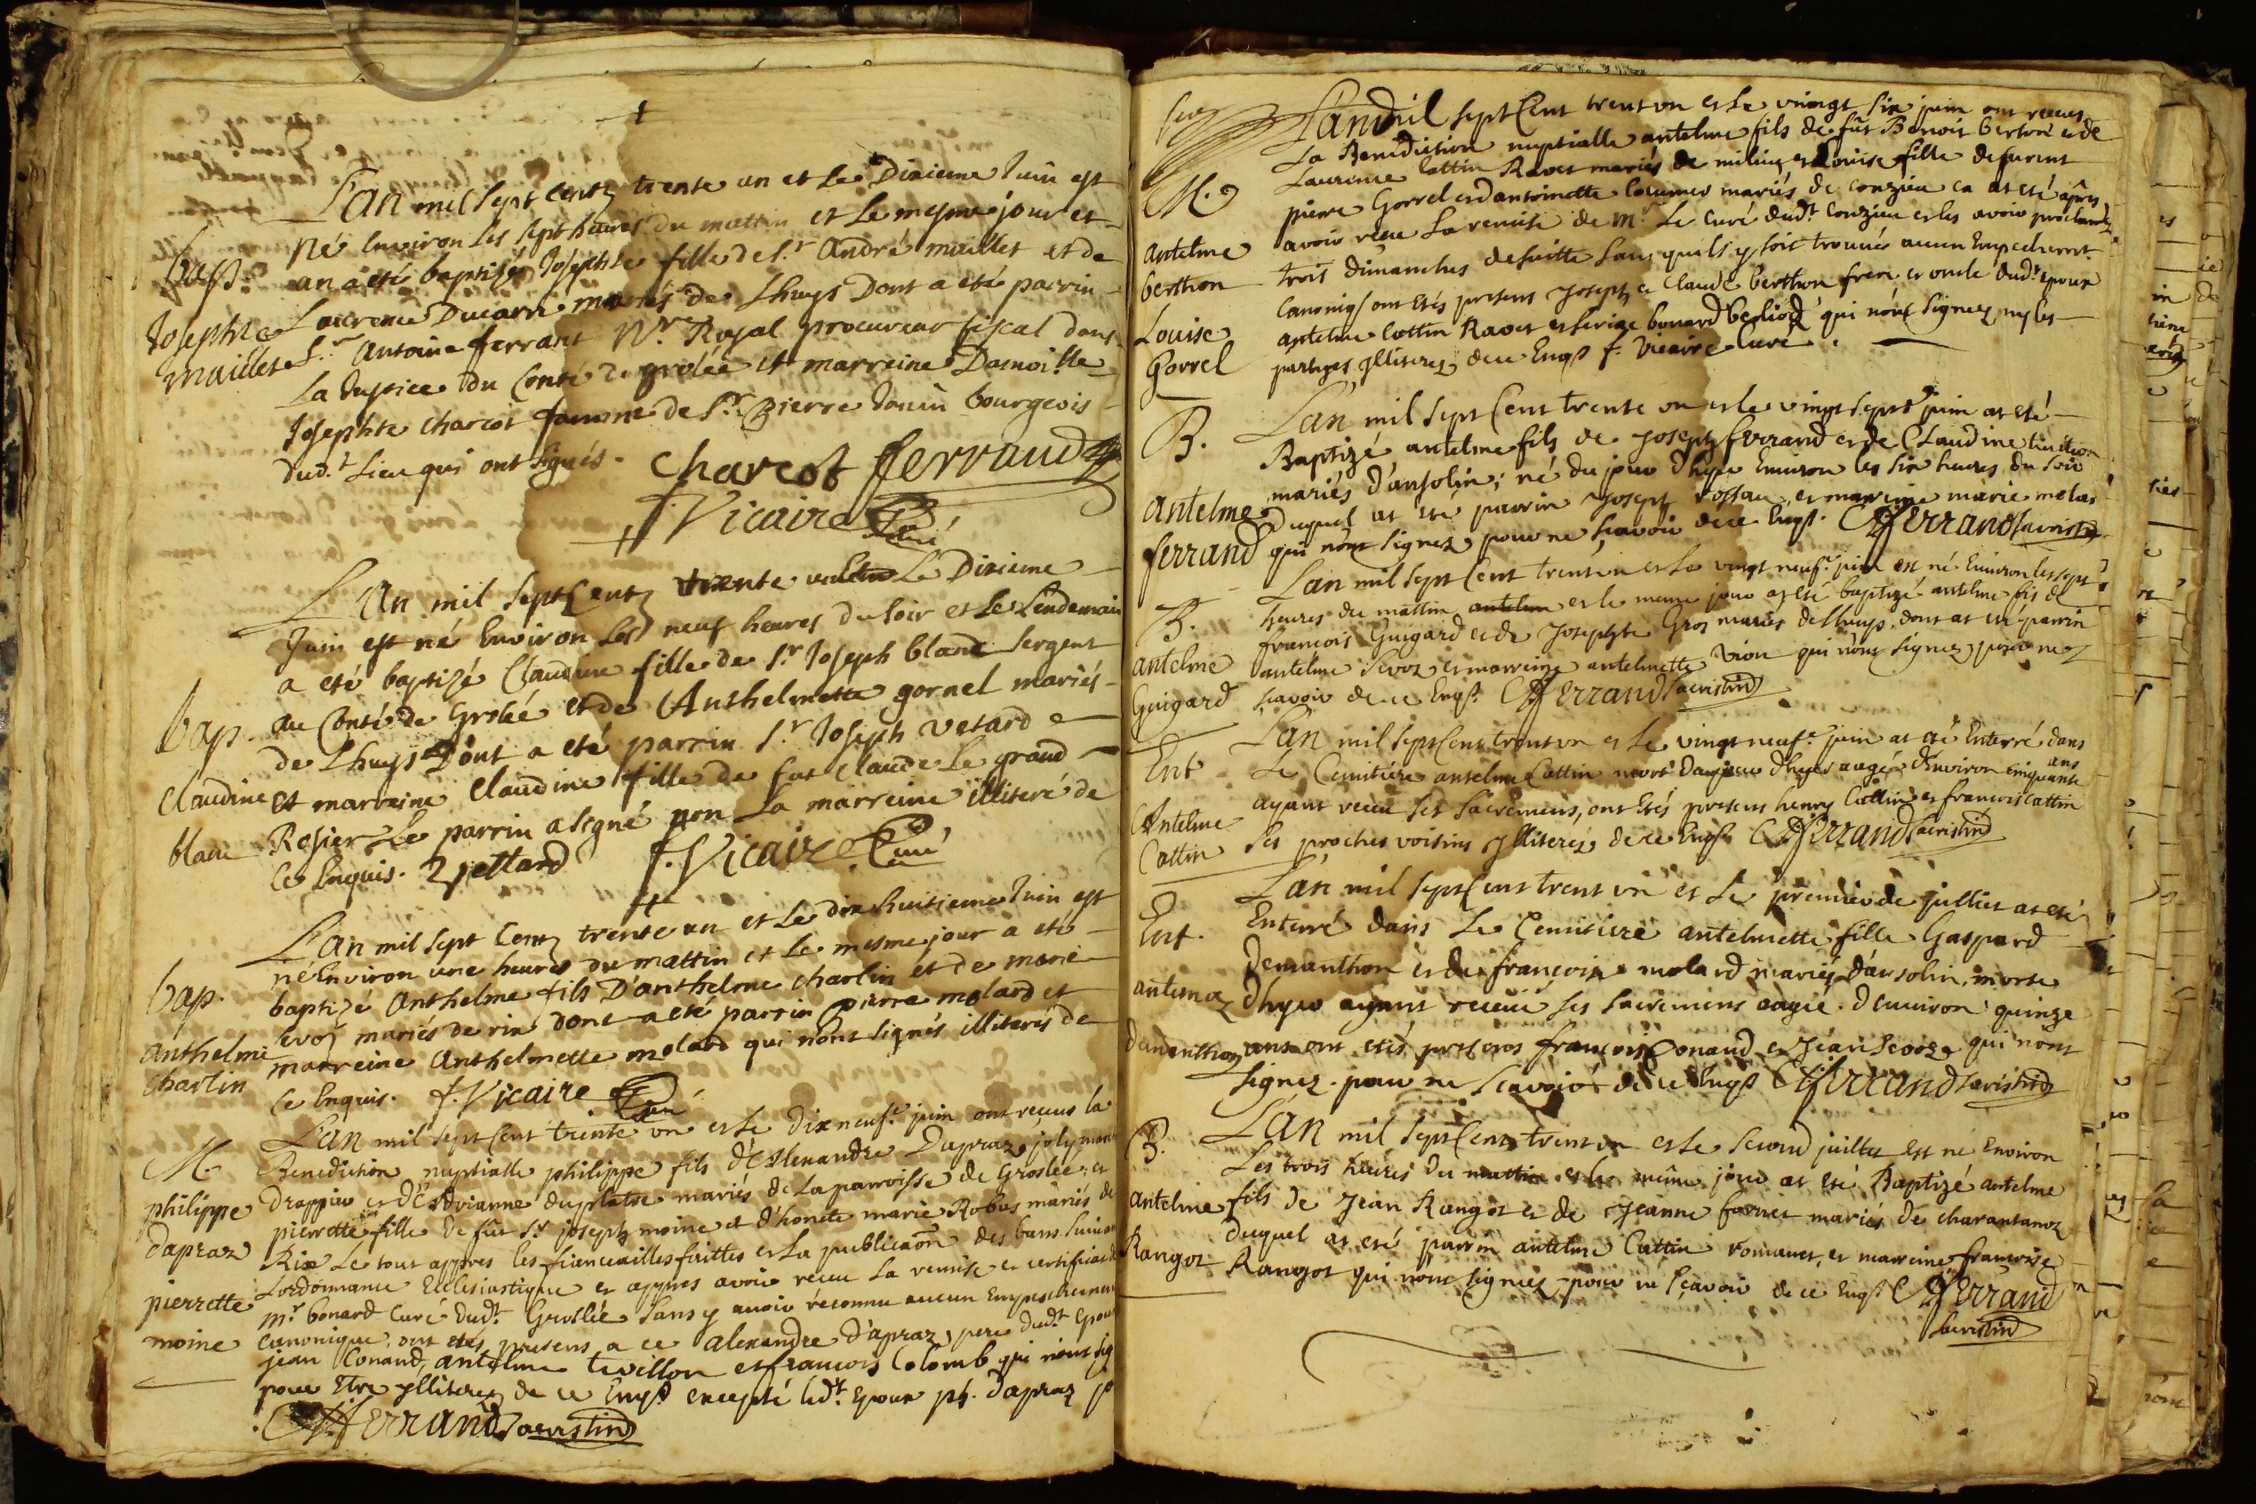 L'an mil sept centz trente un et le Dixieme Juin est
né Environ les sept heures du mattin et le mesme jour et
bap. an a eté baptizée Josephte fille de Sr. André maillet et de
Josephte Laurence Ducarre mariés de Lhuys Dont a eté parrin
maillet Sr. Antoine ferrant Nre. Royal procureur fiscal dans
La Justice du Conté de grolée et marreine Damoille
Josephte charcot famme de Sr. Pierre Janin bourgeois
dud.t Lieu qui ont signés. charcot ferraud
f. Vicaire Curé
L'an mil sept Centz trente un Le Dixieme
Juin est né Environ Les neuf heures du soir et Le Lendemain
a eté baptizé Claudine fille de Sr. Joseph blanc sergent
bap. au Conté de Grolée et de Anthelmette gornel mariés
de Lhuys Dont a eté parrin Sr. Joseph vetard
claudine et marreine claudine fille de fut claude Le grand
blanc Rosier Le parrin a signé non La marreine illiteré de
Ce Enquis. Vettard f. Vicaire Curé
L'an mil sept Centz trente un et Le dix huitieme Juin est
né Environ une heures du mattin et Le mesme jour a eté
bap. baptizé Anthelme fils D'anthelme charlin et de marie
anthelme mariés de rix dont a eté parrin pierre molard et
charlin marreine Anthelmette molard qui nont signés illiterés de
Ce Enquis. f. Vicaire Curé
M. L'an mil sept Cent trente un et Le dix neuf.e juin ont reçus la
Benediction nuptialle philippe fils d'Alexandre Dapraz
philippe et d'Adrianne duplatre mariés de la parroisse de Groslée, et
dapraz pierrette fille de fût Sr. joseph moine et d'honete marie Robas mariés de
Rix Le tout appres les fiencailles faittes et La publicaõn des bans suivant
pierrette Lordonnance Ecclesiastique et appres avoir recu La remise et certificat
moine mr bonard Curé dudt. Groslée sans y avoir reconnu aucun Empeschement
canonique, ont etés presens a ce alexandre d'apraz, pere dudt Epoux
jean Conand, antelme tevillon et francois Colomb qui n'ont
pour Etre ylliterez de ce Enqs. excepté ledt. Epoux ph. dapraz
Ferrand sacristin
L'an mil sept Cent trent un et Le vingt six juin ont receus
La Benediction nuptialle antelme fils de fût Benoit berton et de
M. Laurence Cottin Ravet mariés de milieu et Louise fille de furent
pierre Gorrel et d'antoinette mariés de conzieu ca at eté après
antelme avoir receu La remise de Mr. Le Curé dudt. Conzieu et les avoir proclamé
berthon trois dimanches desuitte sans quils y soit trouvés aucun Empechement
canoniq ont Etés presens joseph et claude berthon frere et oncle dudt Epoux
Louise antelme Cottin Ravet et bonard qui nont signez,
Gorrel parties ylliterez dece Enqs f. Vicaire Curé.
B. L'an mil sept Cent trente un et le vingt sept juin at eté
Baptizé antelme fils de joseph ferrand et de Claudine
mariés d'ansolin; né du jour d'hyer Environ les six heures du soir
antelme Duquel at eté parrin joseph et marreine marie
ferrand qui nont signez pour ne sçavoir dece Enqs. Ferrand sacristin
L'an mil sept Cent trent un et Le vingt neuf.e juin est né Environ les sept
B. heures du mattin antelme et le meme jour at eté baptizé antelme fils de
antelme francois Guigard et de josephte Gros mariés de Lhuys, dont at eté parrin
Guigard antelme et marreine antelmette Vion qui nont signez pour ne
scavoir de ce Enqs. Ferrand sacristin
Ent L'an mil sept Cent trent un et Le vingt neuf.e juin at eté Enterré dans
Le Cemitiere antelme Cattin mort du jour d'hyer aagé d'Environ cinquante ans
Antelme ayant receu ses sacremens, ont Etés presens henry Cattin et francois cattin
Cattin Ses proches voisins ylliterez de ce Enqs Ferrand sacristin
L'an mil sept Cent trent un et Le premier de julliet at eté
Ent. Enterré dans Le Cemitiere antelmette fille Gaspard
Demanthon et de françoise molard mariés d'ansolin, morte
antelme d'hyer ayant receue ses sacremens aagée d'environ quinze
demanthon ans ont etés presens françois Conand et jean qui nont
signez pour ne sçavoir de ce Enqs Ferrand sacristin
B. L'an mil sept Cent trent un et le second juillet est né Environ
Les trois heures du mattin et le même jour at eté Baptizé antelme
antelme fils de Jean Rangot et de Jeanne fornet mariés de charantanoz
Rangot duquel at etés parrin antelme Cattin romanet, et marreine francoise
Rangot qui nont signez pour ne sçavoir de ce Enqs. Ferrand
sacristin